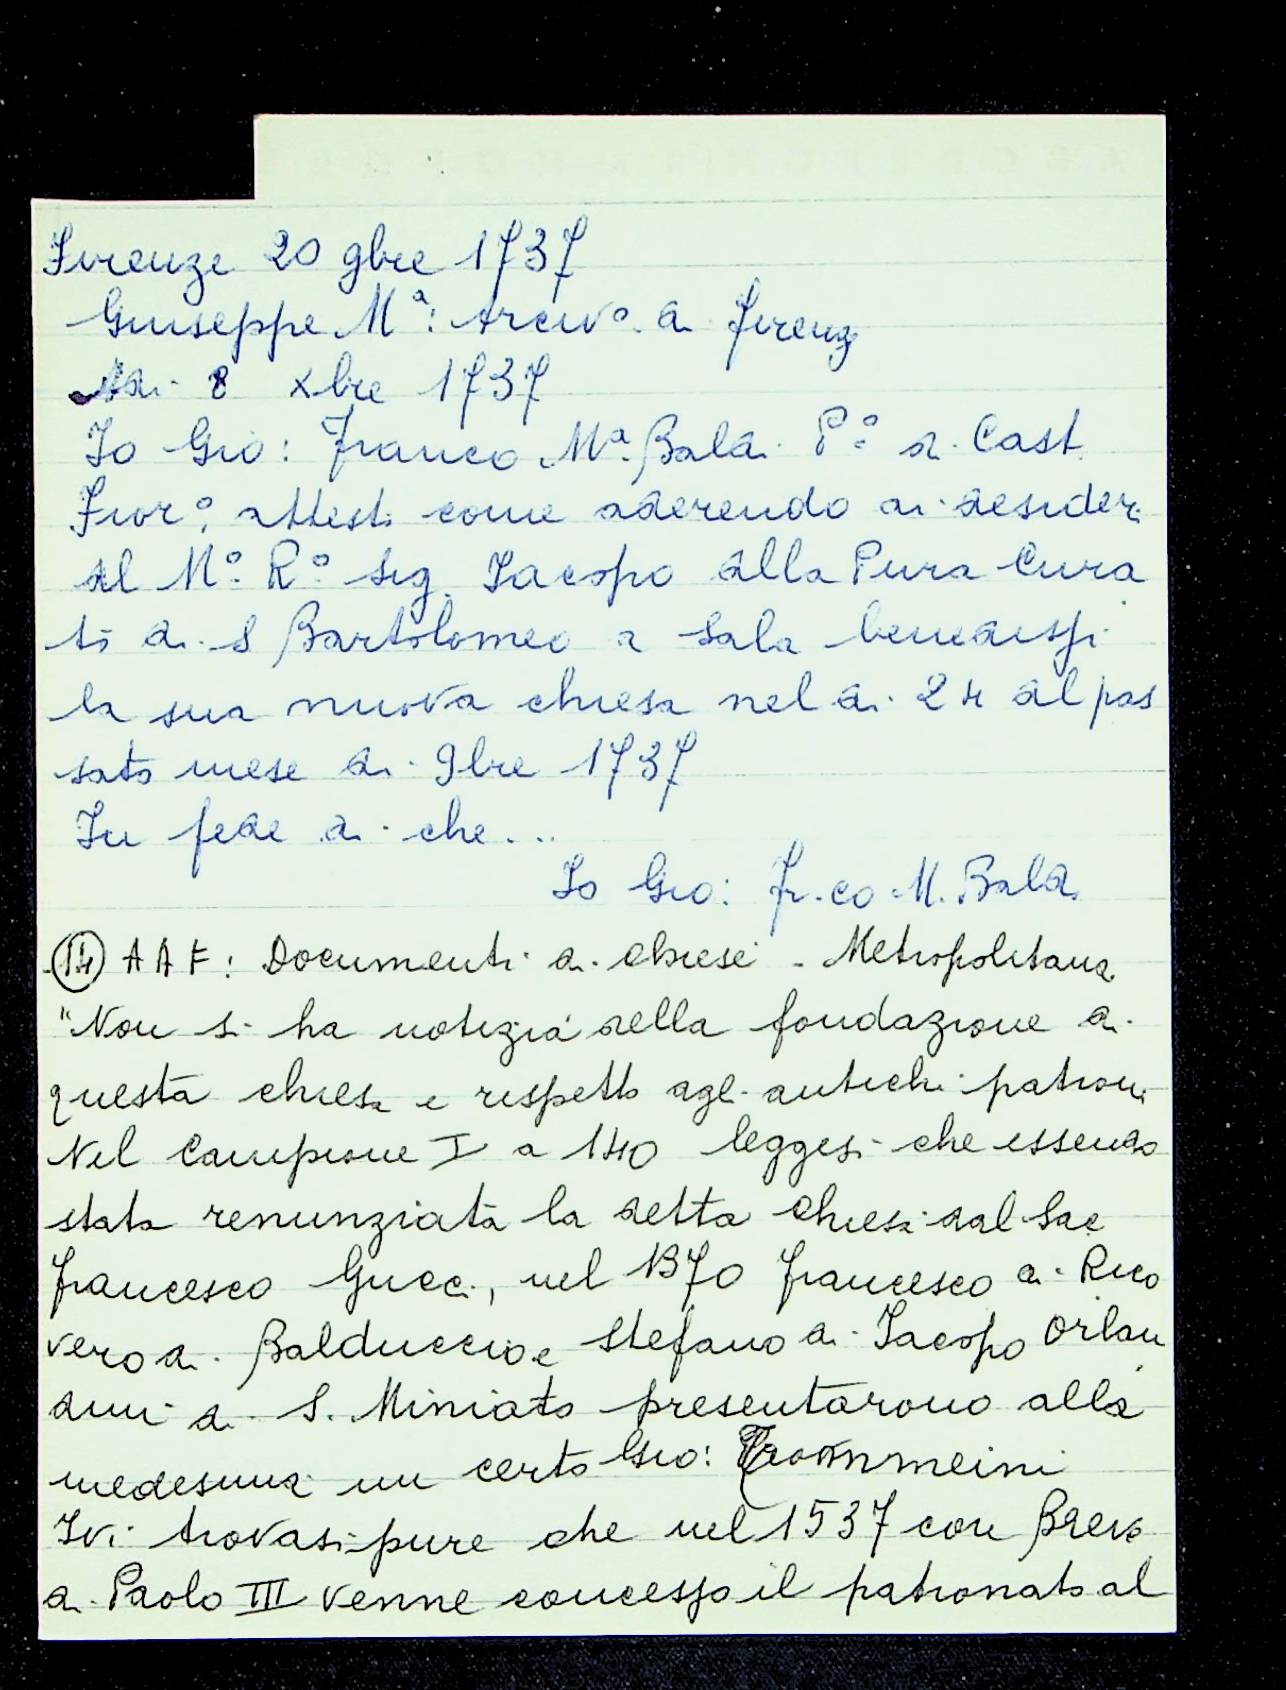 Firenze 20 9bre 1737
Giuseppe Mª: Arcivº di Firenz
Adi 8 Xbre 1737
Io Gio: Franco Mª. Bald. Pº: di Cast
Fiorº: attesti come aderendo ai desider
del Mº. Rº. Sig. Iacopo della Pura Cura
to di S Bartolomeo a Sala benedissi
la sua nuova chiesa nel di 24 del pas
sato mese di 9bre 1737
In fede di che...
Io Gio: Fr.co M. Bald.
(14) AAF: Documenti di chiese - Metropolitana
"Non si ha notizia della fondazione di
questa chiesa e rispetto agli antichi patroni
Nel Campione I a 140 leggesi che essendo
stata renunziata la detta chiesa dal Sac
Francesco Gucci, nel 1370 Francesco di Rico
vero di Balduccio e Stefano di Iacopo Orlan
dini di S. Miniato presentarono alla
medesima un certo Gio:
Ivi trovasi pure che nel 1537 con Breve
di Paolo III venne concesso il patronato al